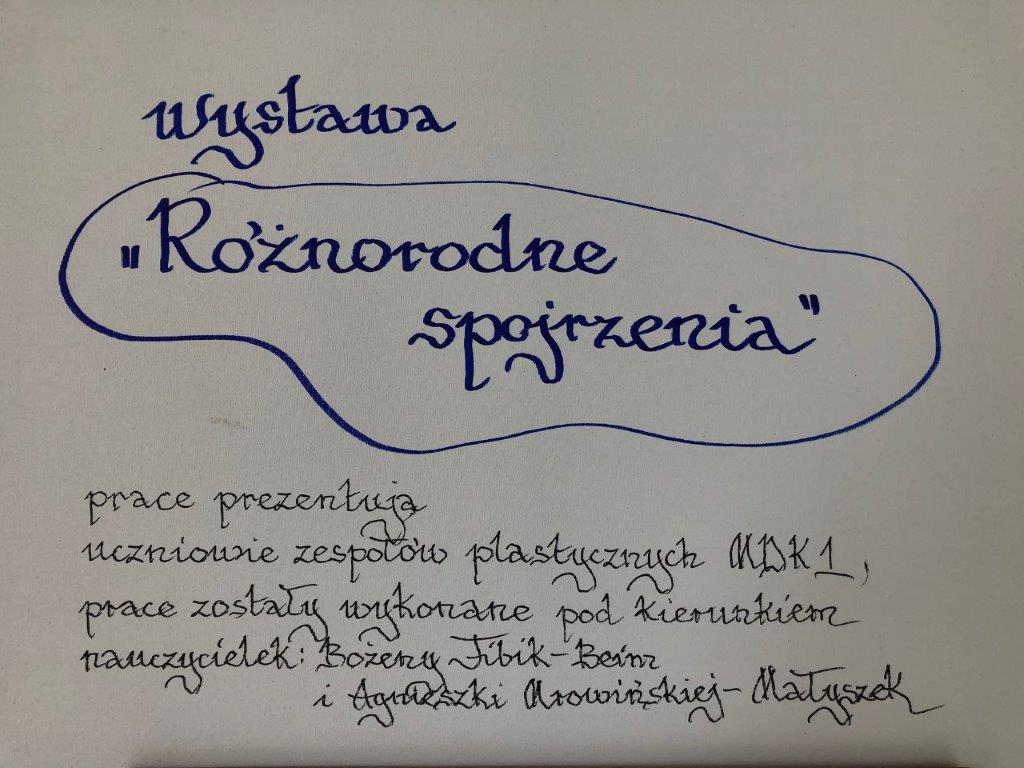 wystawa
"Różnorodne
spojrzenia"
prace prezentują
uczniowie zespołów plastycznych MDK 1,
prace zostały wykonane pod kierunkiem
nauczycielek: Bożeny Fibik-Beim
i Agnieszki Mrowińskiej-Małyszek